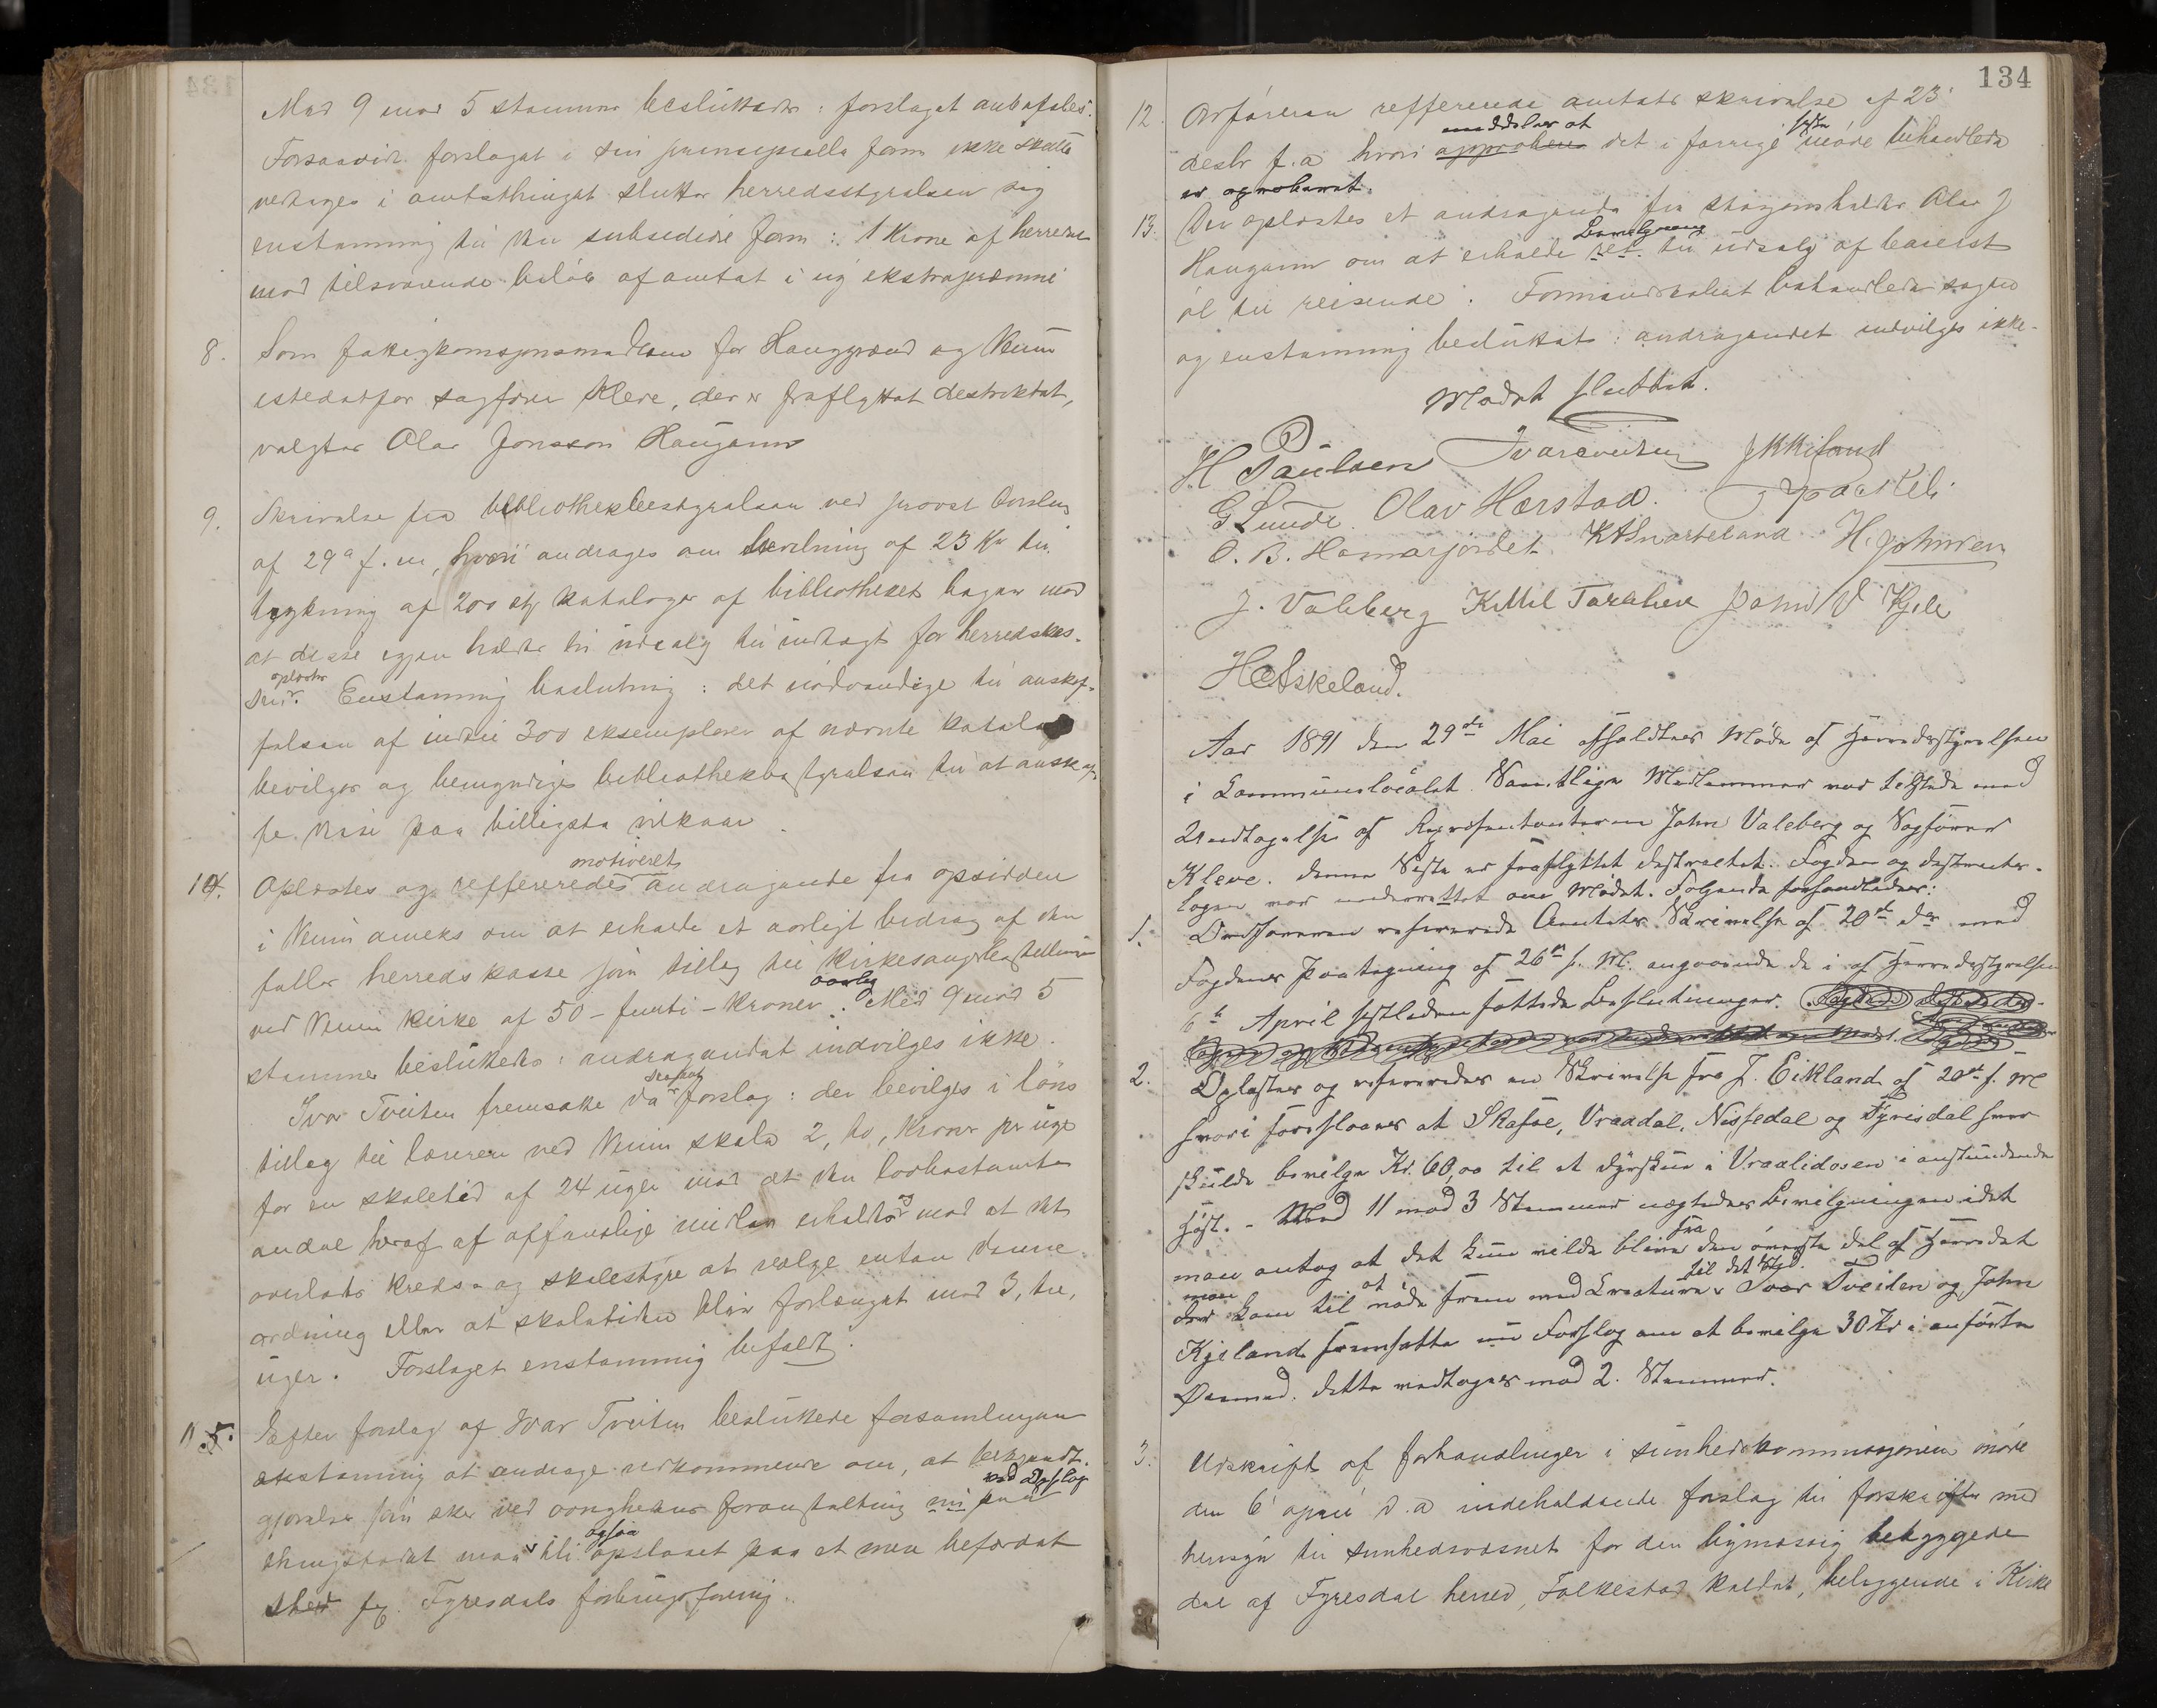 Med 9 mod 5 stemmer besluttedes: forslaget anbefales.
Forsaavidt forslaget i sin principielle form ikke skulle
vedtages i amtsthinget slutter herredsstyrelsen sig
enstemmig til den subsediere form: 1 Krone af herredet
mod tilsvarende beløb af amtet i ny ekstrapræmie
8. Som fattigkomsjonsmedlem for Hauggrend og Veum
istedetfor sagfører Kleve, der er fraflyttet destriktet,
valgtes Olav Jonsson Haugann
9. Skrivelse fra bibliothekbestyrelsen ved provst Corslen
af 29de f. m, hvori andrages om bevilgning af 23 Kr til
trykning af 200 stk kataloger af bibliothekets bøger mod
at disse igjen holdes til udsalg til indtægt for herredskas-
sen oplæstes. Enstemmig beslutning: det nødvendige til anskaf-
felsen af indtil 300 eksemplarer af nævnte katalog
bevilges og bemyndiges bibliothekbestyrelsen til at anskaf-
fe disse paa billigste vilkaar.
10. Oplæstes og reffereredes motiveret andragende fra opsidden
i Veum anneks om at erholde et aarligt bedrag af den
fælles herredskasse som tillæg til kirkesangerbestillingen
ved Veum kirke af 50 - femti - kroner aarlig: Med 9 mod 5
stemmer besluttedes: andragendet indvilges ikke.
Ivar Tveiten fremsatte da saadant forslag: der bevilges i løns
tillæg til læreren ved Veum skole 2, to, Kroner pr uge
for en skoletid af 24 uger mod at den lovbestemte
andel heraf af offentlige midler erholdes og mod at det
overlades kredsen og skolestyre at vælge enten denne
ordning eller at skoletiden blir forlænget med 3, tre,
uger. Forslaget enstemmig bifaldt.
11. Efter forslag af Ivar Tveiten besluttede forsamlingen
enstemmig at andrage vedkommende om, at bekjendt-
gjørelser som sker ved øvrighedens foranstaltning ved opslag paa
thingstedet maa bli ogsaa opslaaet paa et mere befærdet
sted fx. Tyresdals forbrugsforening.
134
12. Ordføreren reffererede amtets skrivelse af 23'
desbr f. a hvori meddeles at det i forrige møde behandlede
er approberet.
13. Der oplæstes et andragende fra skogsmholder Olav J
Haugann om at erholde Bevilgning til udsalg af baierst
øl til reisende. Formandskabet behandlede sagen
og enstemmig besluttet: andragendet indvilges ikke.
Mødet sluttet.
H Paulsen Ivar Tveiten J K Kiland
G Lunde. Olav Hærstad.
O. B. Hamarjordet K A Snarteland H. Johnsen
J. Valeberg Kittil Tarahein John V Kjele
H Askeland.
Aar 1891 den 29de Mai afholdtes Møde af Herredsstyrelsen
i Communelocalet. Samtlige Medlemmer var tilstede med
Undtagelse af Repræsentanterne John Valeberg og Sagfører
Kleve. denne Sidste er fraflyttet distriktet. Fogden og distrikts-
lægen var underrettet om Mødet. Følgende forhandledes:
1. Ordføreren refererede Amtets Skrivelse af 20de ds med
Fogdens Paategning af 26de s. M. angaaende de i af Herredsstyrelsen
6te April sistleden fattede Beslutninger.
2. Oplæstes og refereredes en Skrivelse fra J. Eikland af 20de f. M
hvori foreslaaes at Skafse, Vraadal, Nissedal og Fyrisdal hver
skulde bevilge Kr. 60,00 til et dyrskue i Vraalidosen i anstundende
Høst. - Med 11 mod 3 Stemmer nægtedes Bevilgningen idet
man antog at det kun vilde blive fra den øverste del af Herredet
man kom til at møde frem med Creature til det Sted. Ivar Tveiten og John
Kjeland fremsatte nu Forslag om at bevilge 30 Kr i anførte
Øiemed. dette vedtoges mod 2. Stemmer.
3. Udskrift af forhandlinger i sunhedskommissjonen møde
den 6' april d. a indeholdende forslag til forskrifter med
hensyn til sunhedsvæsnet for den bymæssig bebyggede
del af Fyresdal herred, Folkestad kaldet, beliggende i Kirke